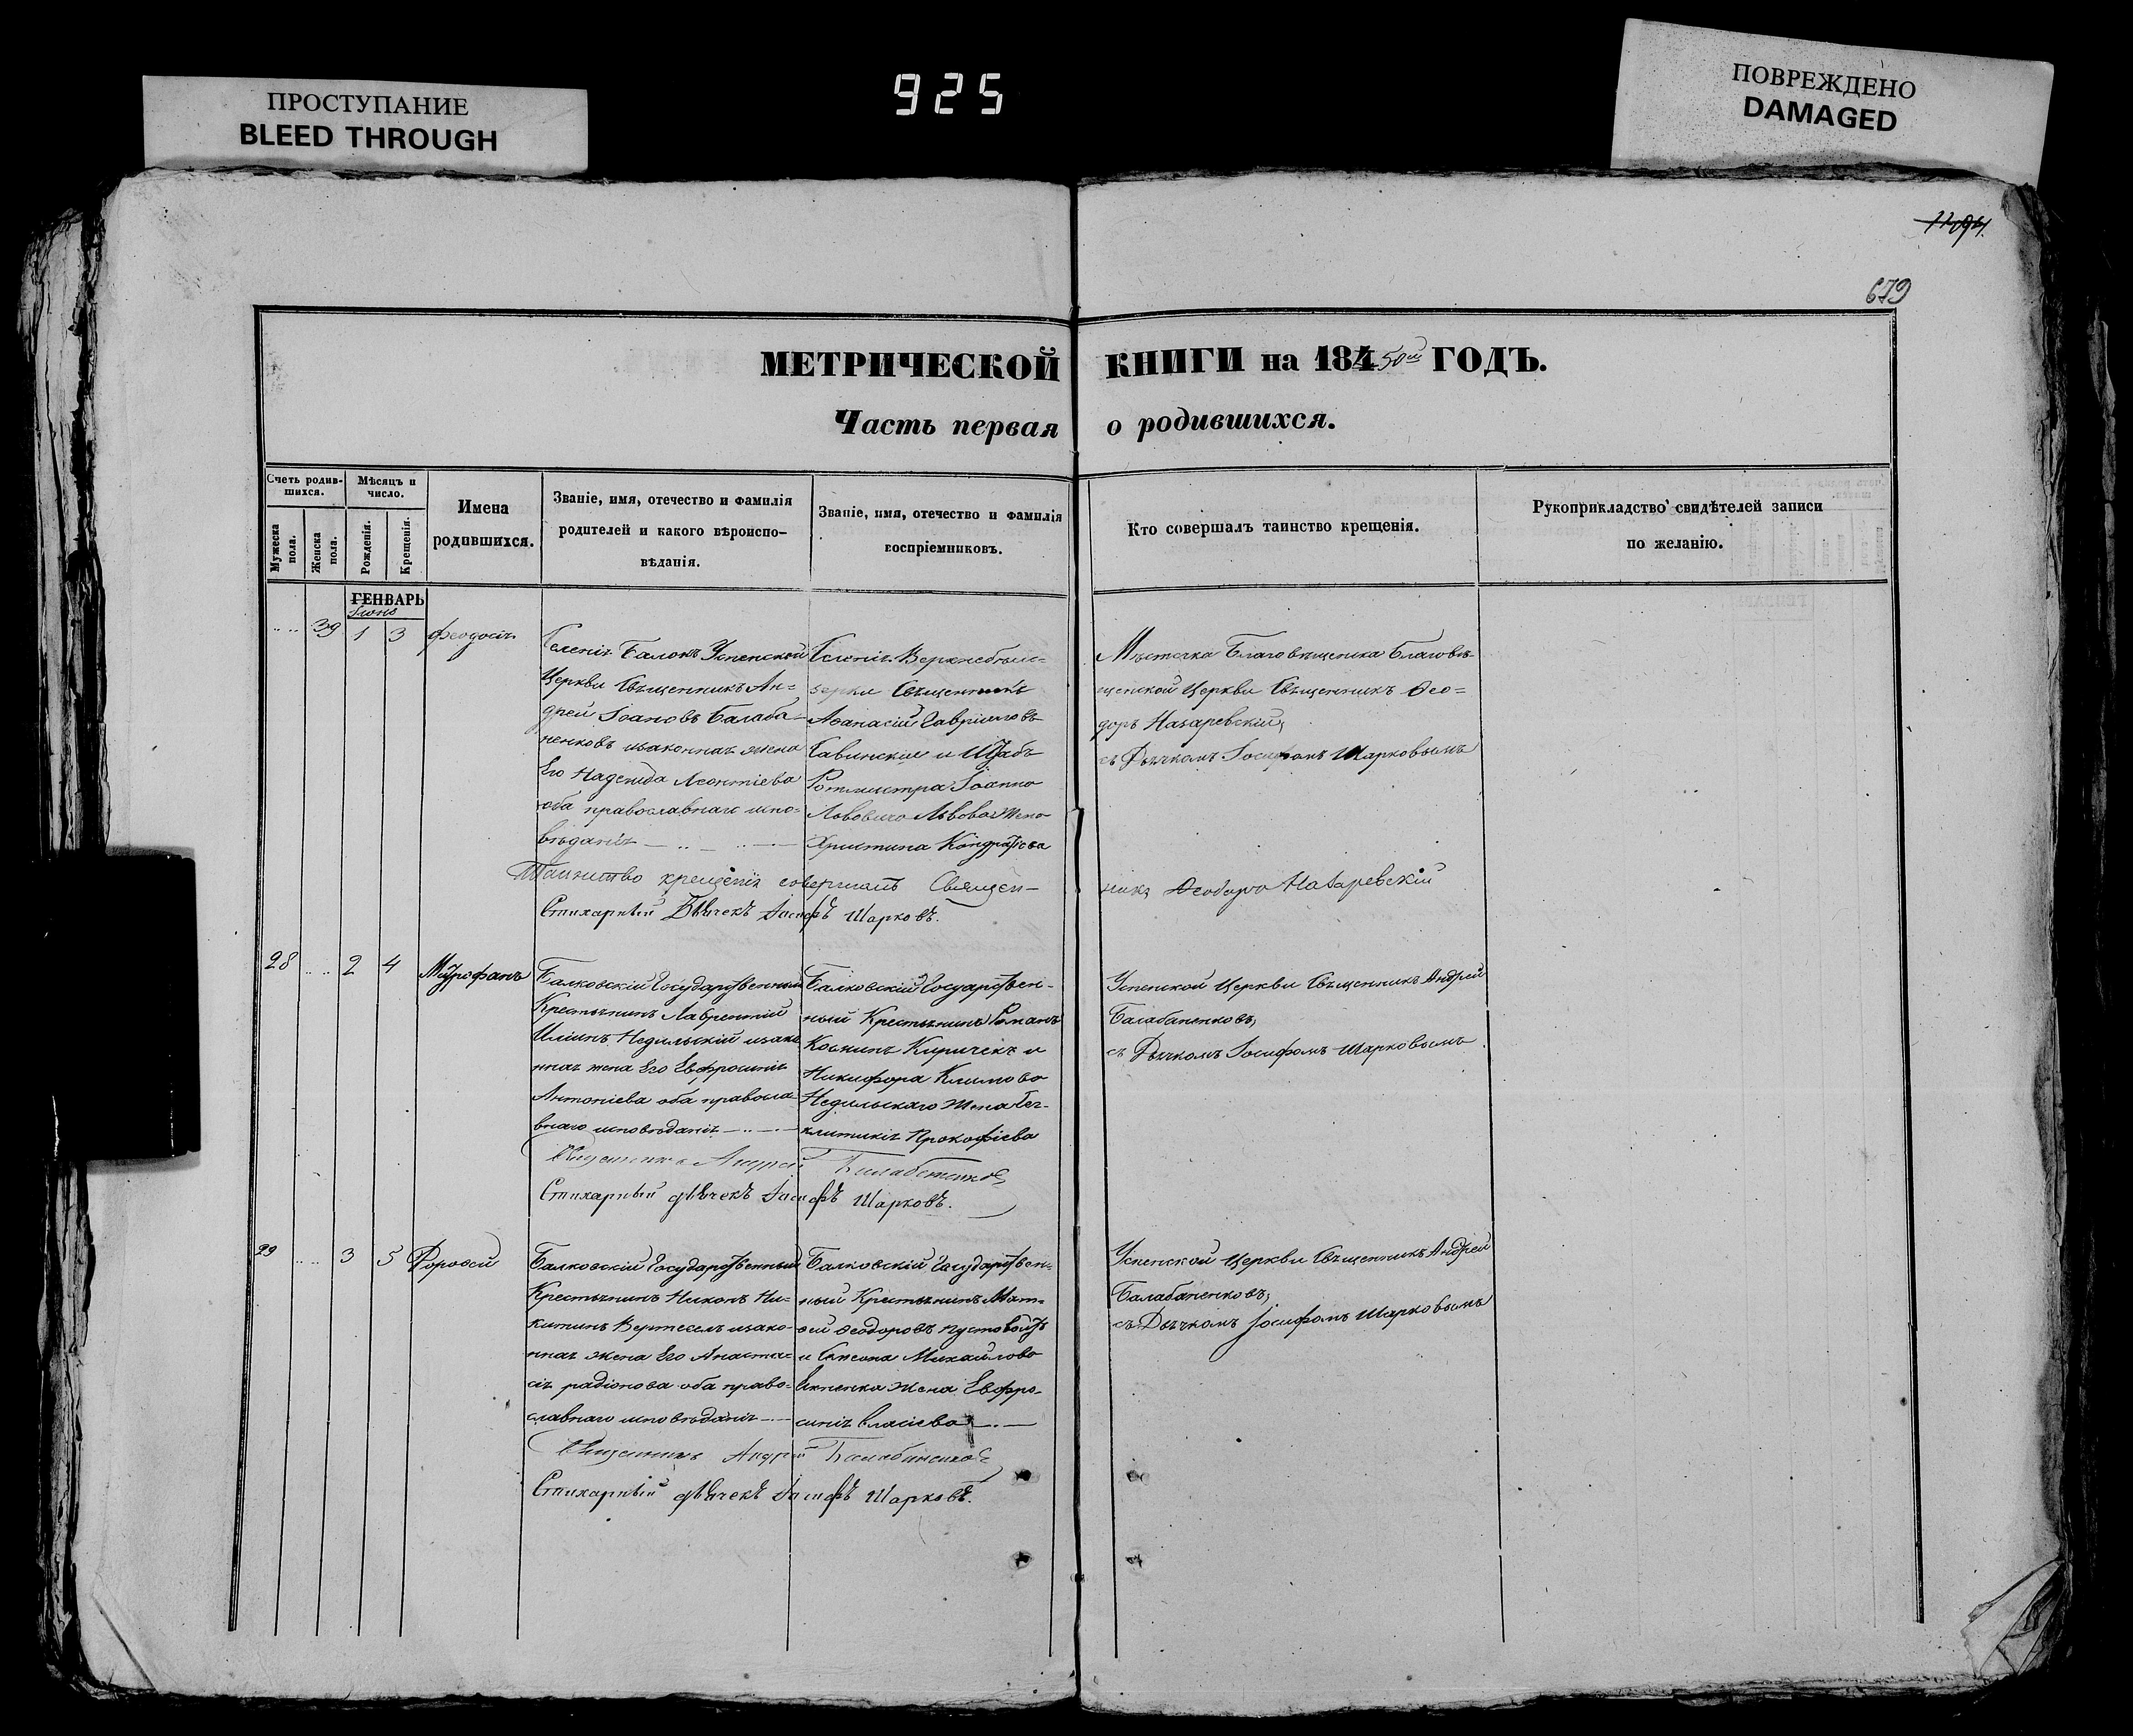 ПРОСТУПАНИЕ
BLEED THROUGH
925
ПОВРЕЖДЕНО
DAMAGED
679
МЕТРИЧЕСКОЙ КНИГИ на 184 50й ГОДЪ.
Часть первая о родившихся.
Счетъ родив-
шихся.
Мужеска пола.
Женска пола.
Мѣсяцъ и
число.
Рожденія.
Крещенія.
Имена
родившихся.
Званіе, имя, отечество и фамилія
родителей и какого вѣроиспо-
вѣданія.
Званіе, имя, отечество и фамилія
воспріемниковъ.
Кто совершалъ таинство крещенія.
Рукоприкладство свидѣтелей записи
по желанію.
ГЕНВАРЬ
39 1 3 Феодосія
Селенія Балокъ Успенской
Церкви Священникъ Ан-
дрей Іоановъ Балаба-
ненковъ изаконная жена
Его Надежда Леонтіева
оба православнаго испо-
вѣданія
Селенія
Священникъ
Афанасій Гавріиловъ
Савинскій и Штабъ
Ротмистра Іоанна
Львовича Львова Жена
Христина Кондратіева
Мѣстечка Благовѣщенска Благовѣ-
щенской Церкви Священникъ Ѳео-
доръ Назаревскій,
съ Дьячкомъ Іосифомъ Шарковымъ
Таинство крещенія совершалъ Священ-
никъ Ѳеодоръ Назаревскій
Стихарный Дьячекъ Іосифъ Шарковъ.
28 2 4 Митрофанъ
Балковскій Государственный
Крестьянинъ Лаврентій
Иліинъ Недильскій изако
нная жена Его Евфросинія
Антоніева оба правосла-
внаго исповѣданія
Балковскій Государствен-
ный Крестьянинъ Романъ
Косминъ Киричекъ и
Никифора Климова
Недильскаго Жена Гег-
ликия Прокофіева
Успенской Церкви Священникъ Андрей
Балабаненковъ,
съ Дьячкомъ Іосифомъ Шарковымъ
Священникъ Андрей Балабаненковъ
Стихарный дьячекъ Іосифъ Шарковъ.
29 3 5 Дорофей
Балковскій Государственный
Крестьянинъ Никонъ Ни-
китинъ изако-
нная жена Его Анаста-
сія радіонова оба право-
славнаго исповѣданія
Балковскій Государствен-
ный Крестьянинъ Мат-
фей Ѳеодоровъ Пустовойтъ
и Симеона Михайлова
Жена Евфро-
синія власіева
Успенской Церкви Священникъ Андрей
Балабаненковъ,
съ Дьячкомъ Іосифомъ Шарковымъ
Священникъ Андрей Балабаненковъ
Стихарный дьячекъ Іосифъ Шарковъ.